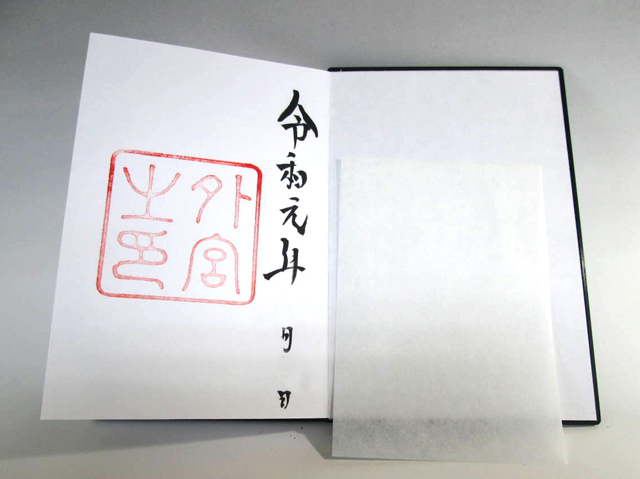 令和元年 月 日
外宮
之印